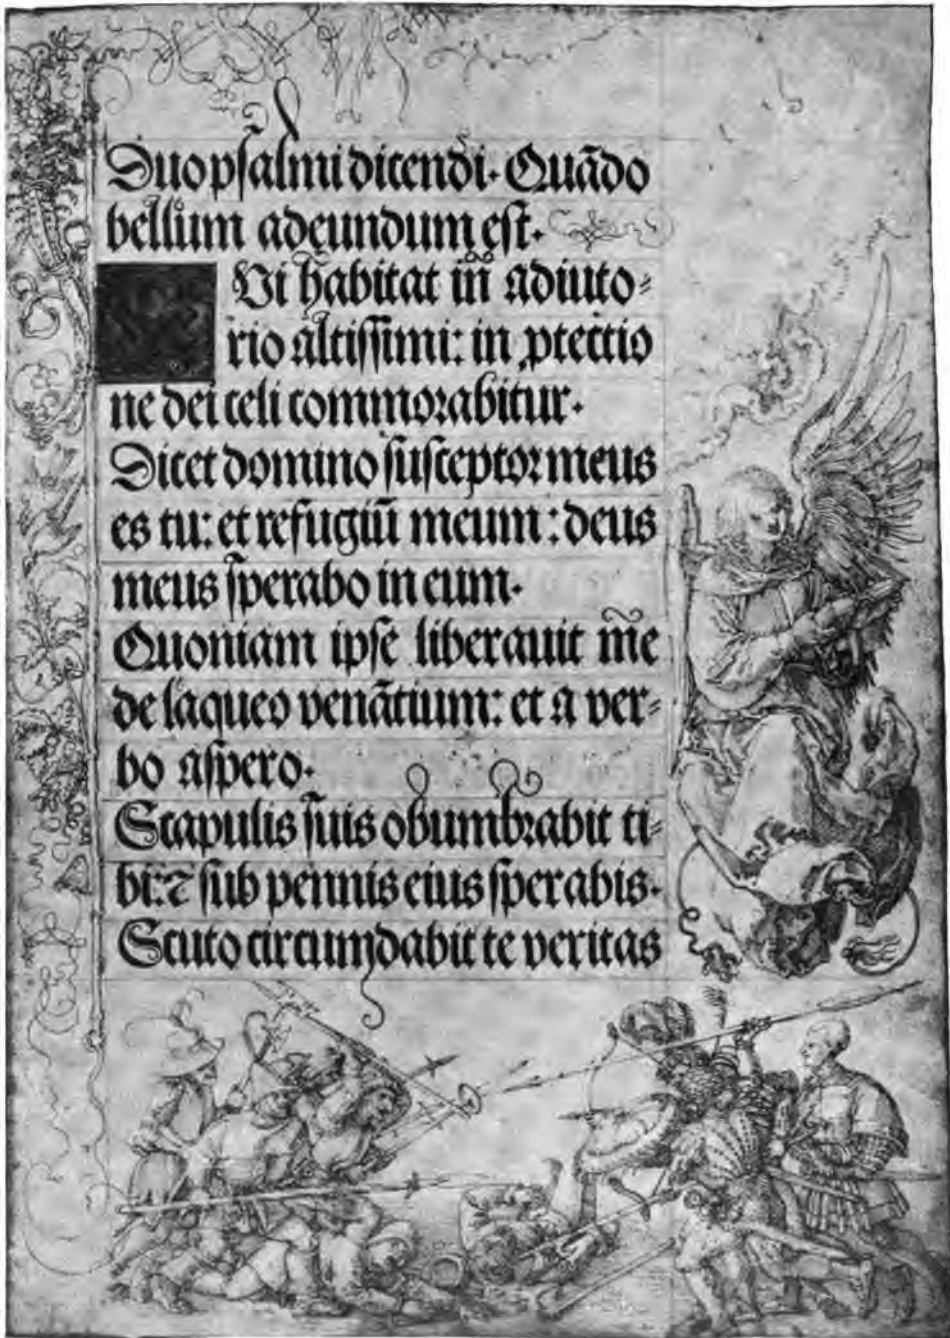 Duo psalmi dicendi. Quãdo
bellum adeundum est.
Vi habitat iñ adiuto⸗
rio altissimi: in ꝓtectio
ne dei celi commorabitur.
Dicet domino susceptor meus
es tu: et refugiũ meum: deus
meus sperabo in eum.
Quoniam ipse liberauit m̃e
de laqueo venãtium: et a ver⸗
bo aspero.
Scapulis suis obumbrabit ti⸗
bi: ⁊ sub pennis eius sperabis.
Scuto circumdabit te veritas